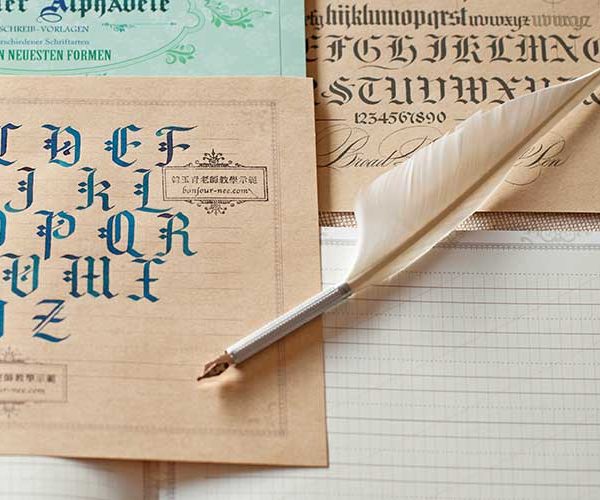 Alphabete
SCHREIB-VORLAGEN
rschiedener Schriftarten
N NEUESTEN FORMEN
hijklmnopqrst uvwxyz uvwxyz
EFGHIJKLMNO
STUVWXYZ
1234567890
Broad Pen
C D E F
J K L
P Q R
V W X
Z
韓玉青老師教學示範
bonjour-nee.com
老師教學示範
ur-nee.com